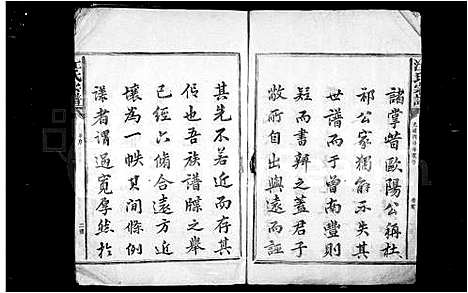 諸掌昔歐陽公稱杜
祁公家獨能不失其
世譜而于曾南豐則
貽而書辨之蓋君子
敬所自出與遠而誣
其先不若近而存其
信也吾族譜牒之舉
已經六脩合遠方
壞為一帙其間條例
謹者謂過寬厚然於